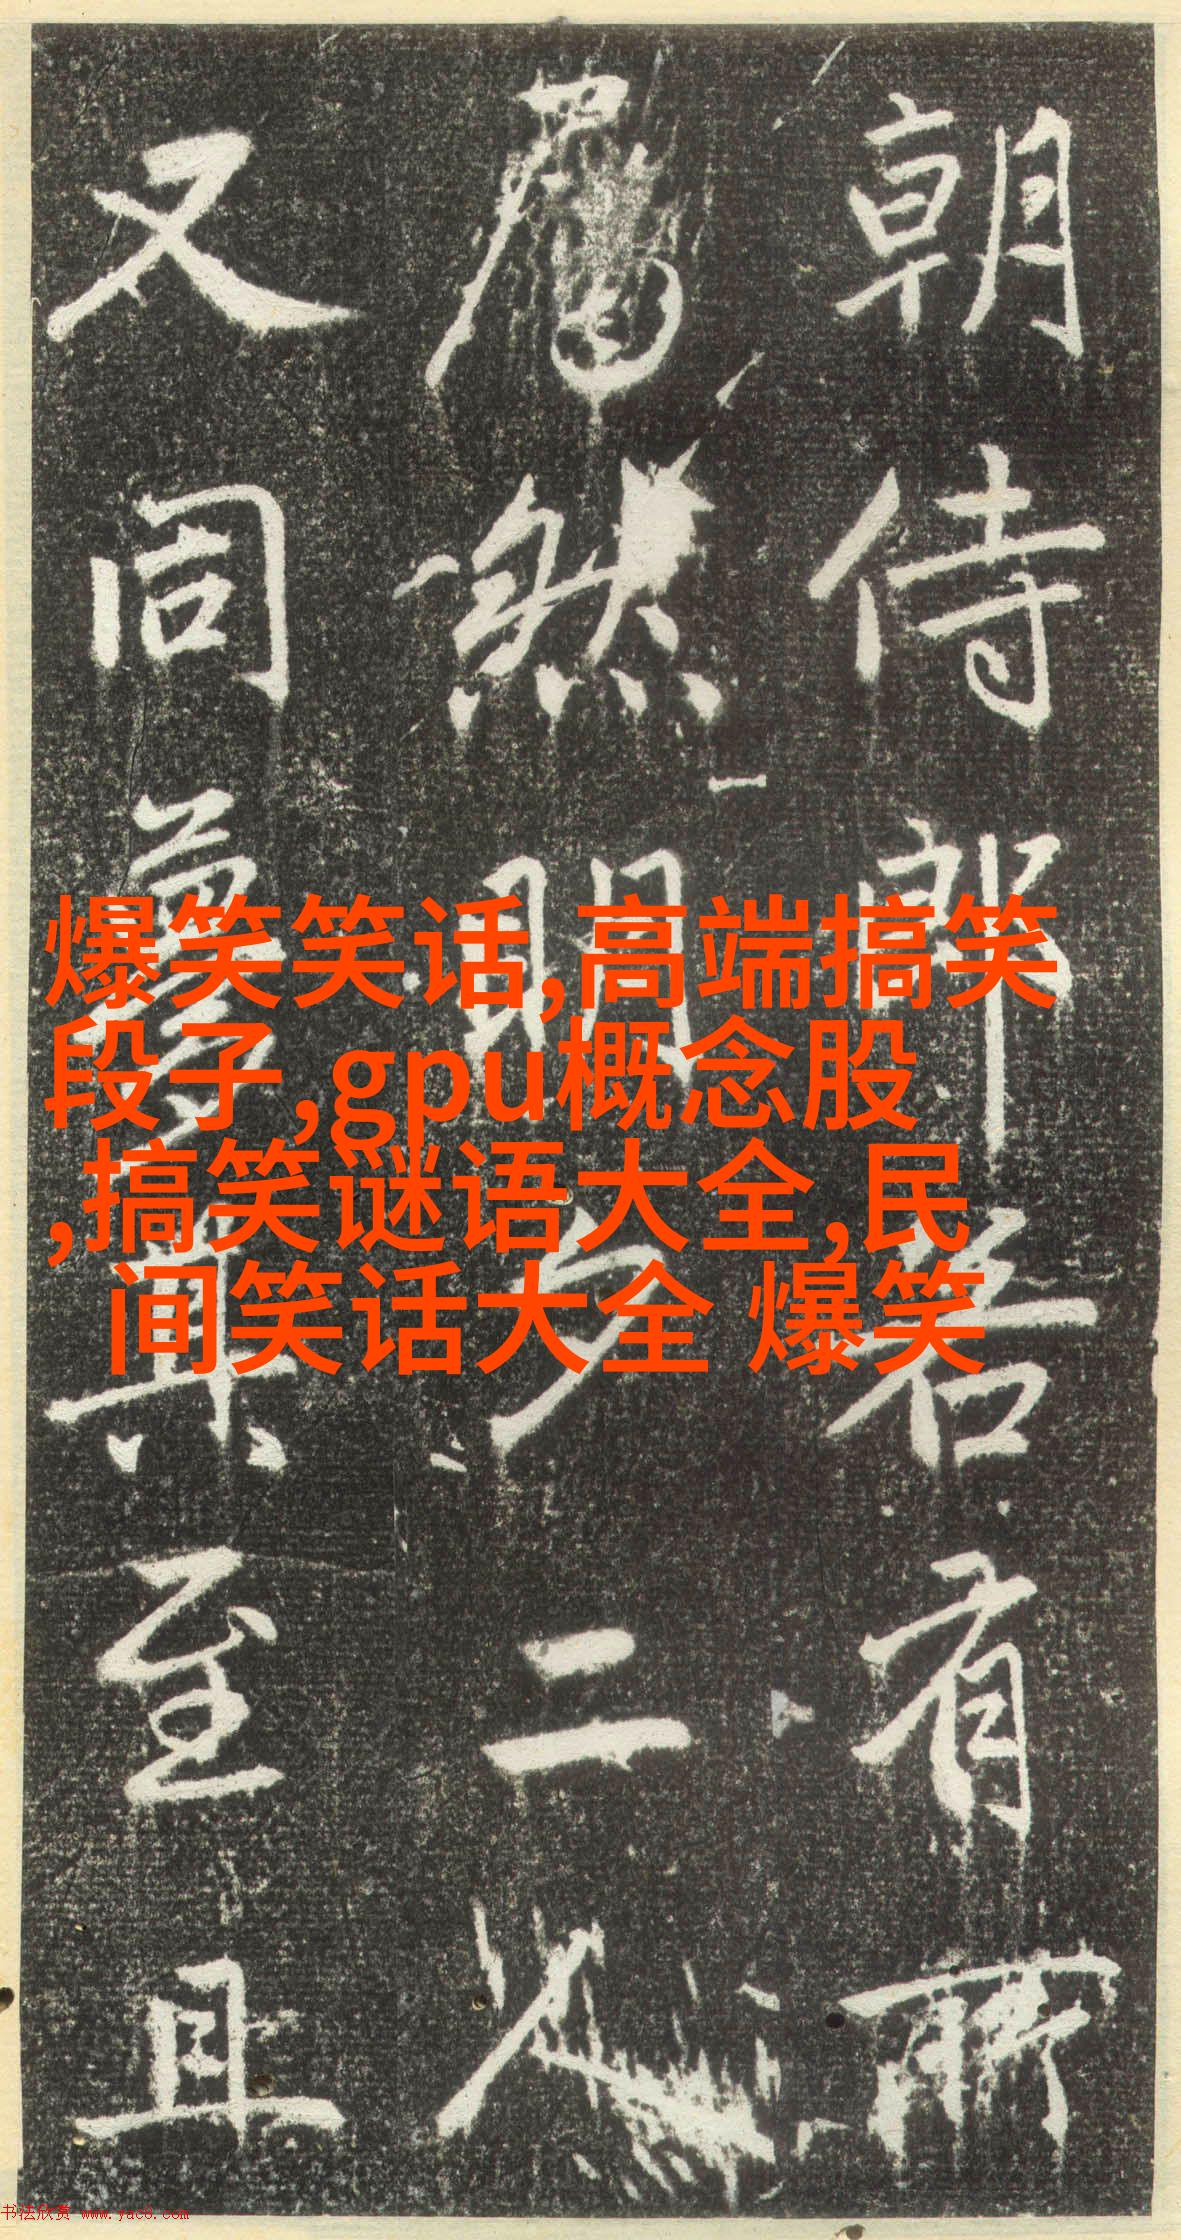 朝侍郎若有所
然明夕二人
又同夢其至且
爆笑笑话,高端搞笑
段子,gpu概念股
,搞笑谜语大全,民
间笑话大全 爆笑
书法欣赏 www.yac8.com